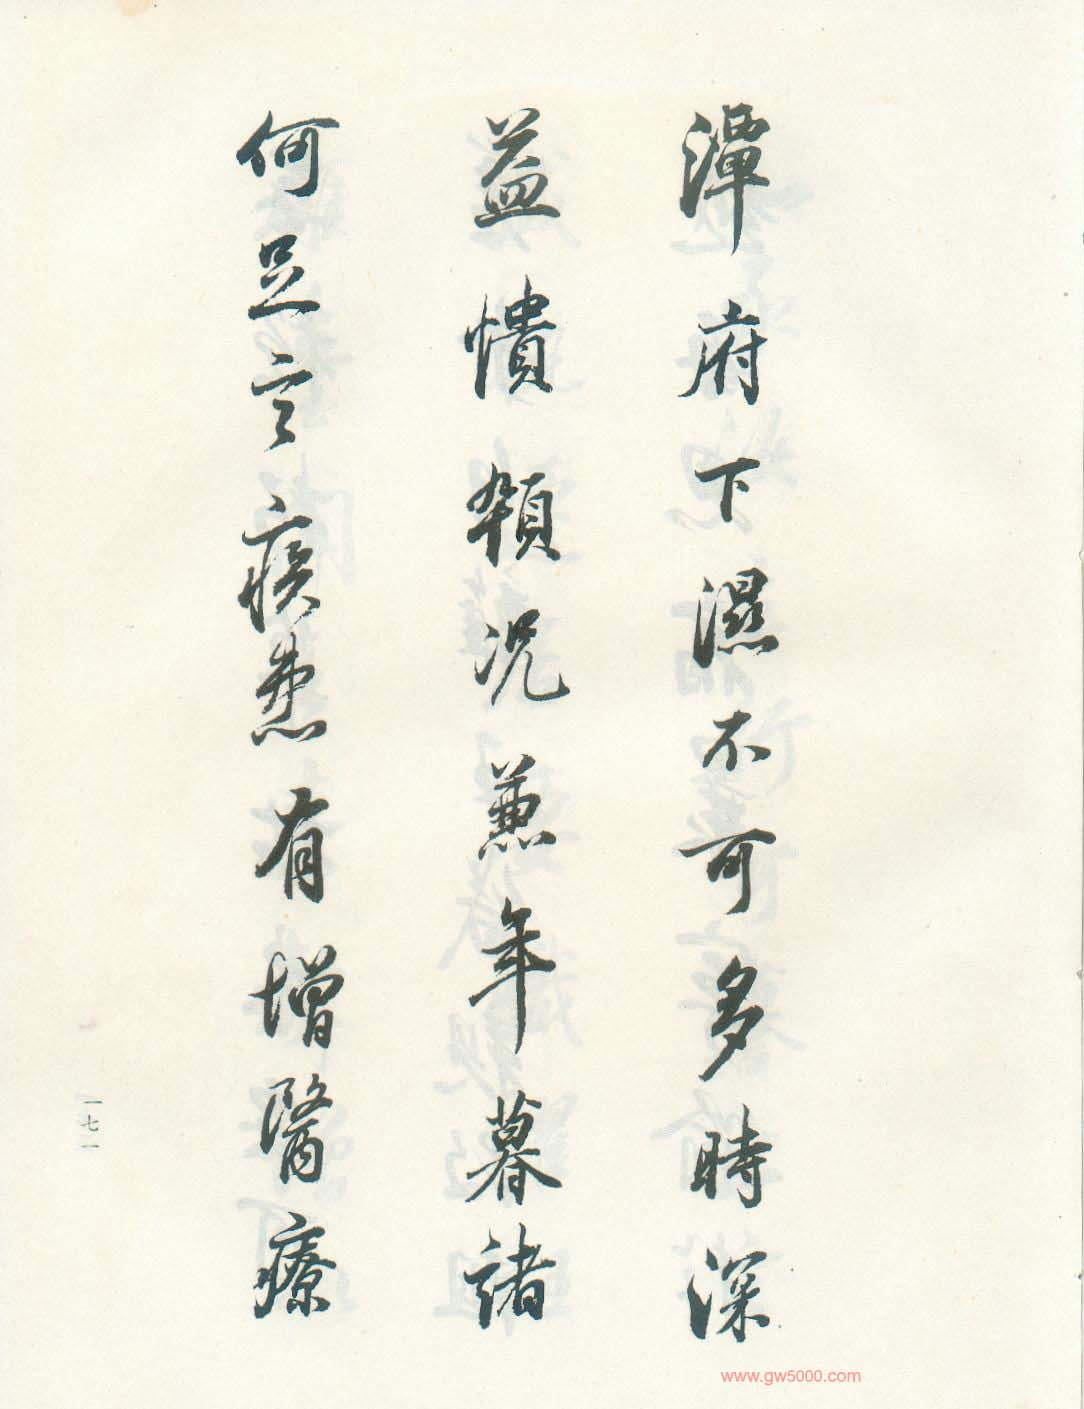 潭府下濕不可多時深
益憒顇況兼年暮諸
何足言疾患有增醫療
一七一
www.gw5000.com